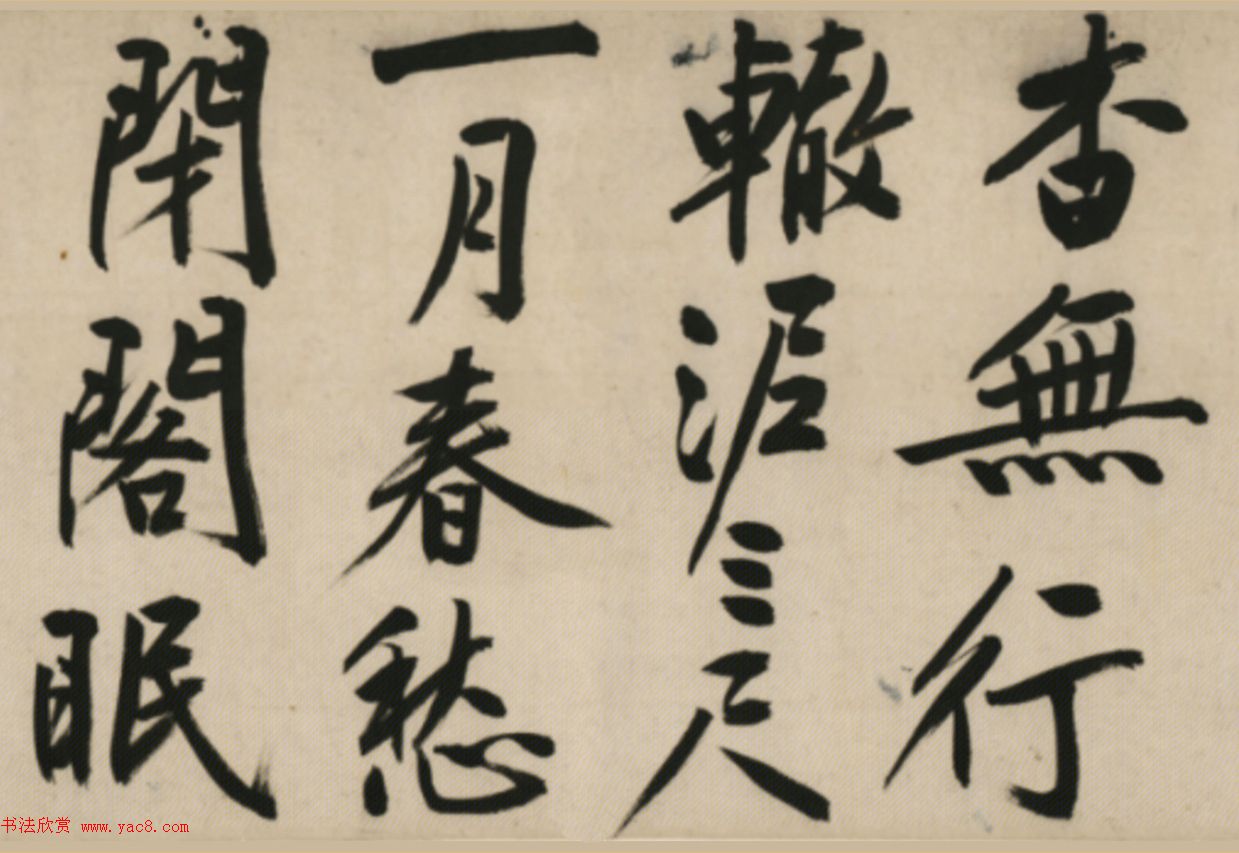 杳無行
轍泥三尺
一月春愁
閉閣眠
书法欣赏 www.yac8.com